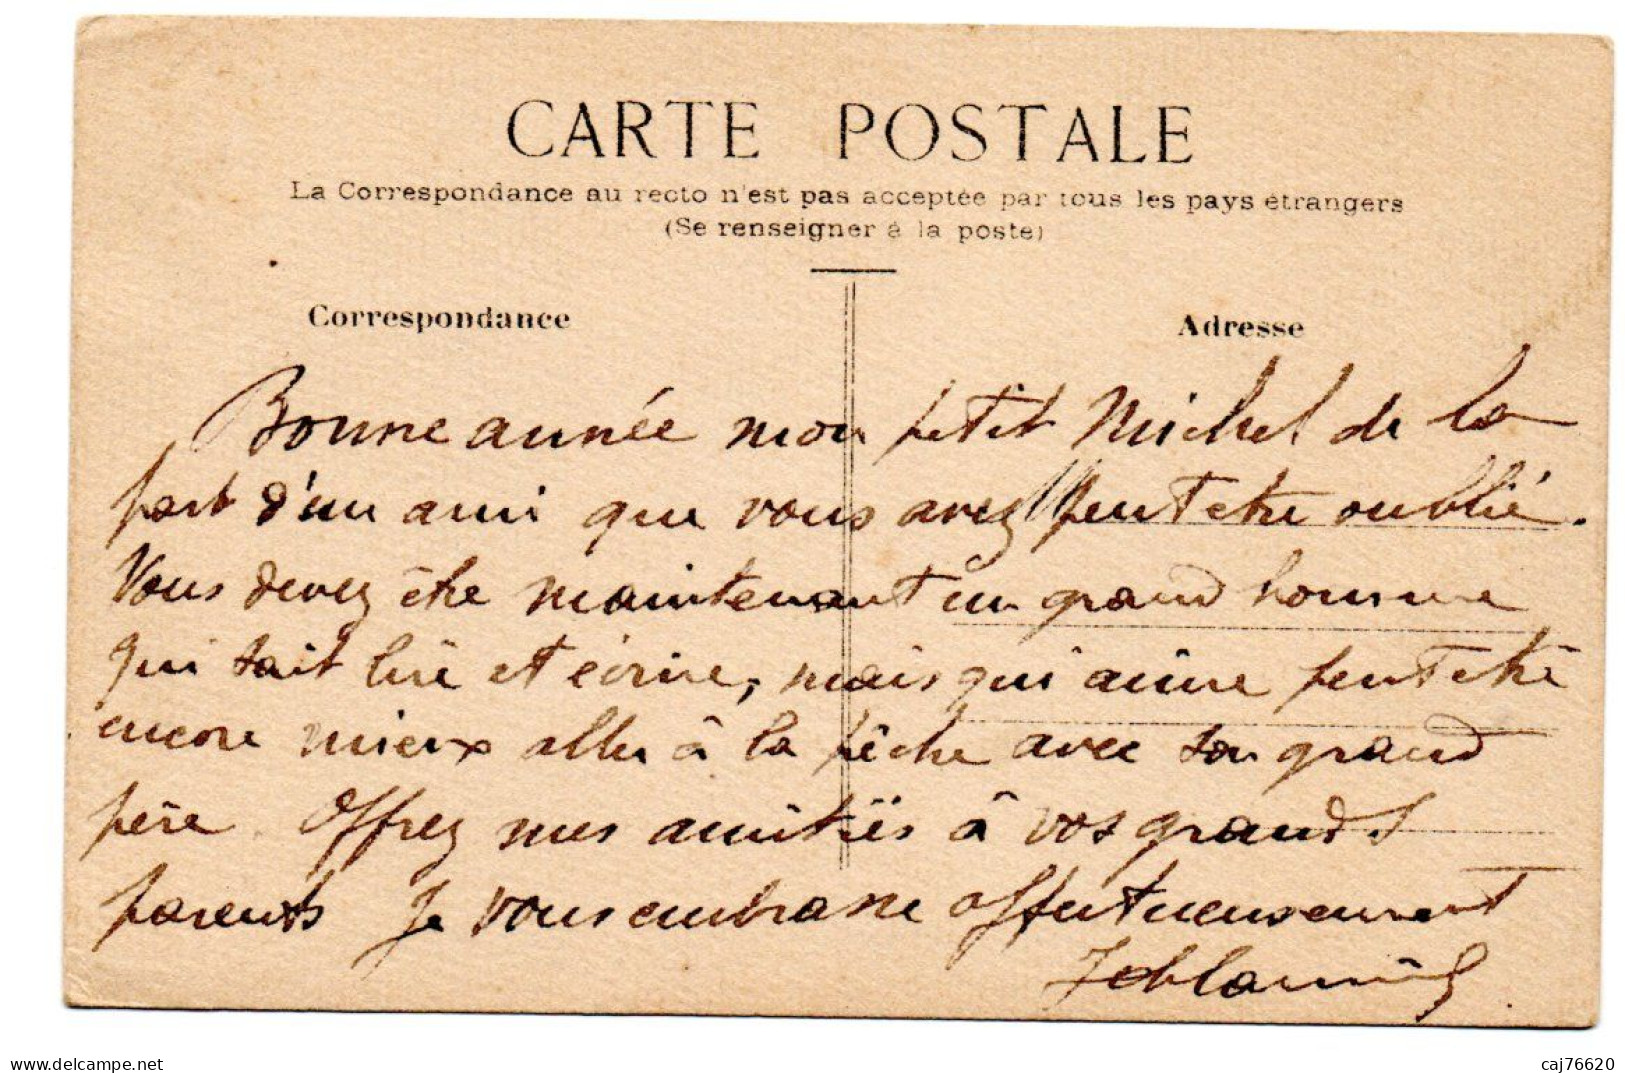 CARTE POSTALE
La Correspondance au recto n'est pas acceptée par tous les pays étrangers
(Se renseigner à la poste)
Correspondance
Adresse
Bonne année mon petit Michel de la
part d'un ami que vous avez peut etre oublié.
Vous devez être maintenant un grand homme
qui sait lire et écrire, mais qui aime peut etre
encore mieux aller à la pêche avec son grand
père. Offrez mes amitiés à vos grands
parents Je vous embrasse affectueusement
delcampe.net
caj76620